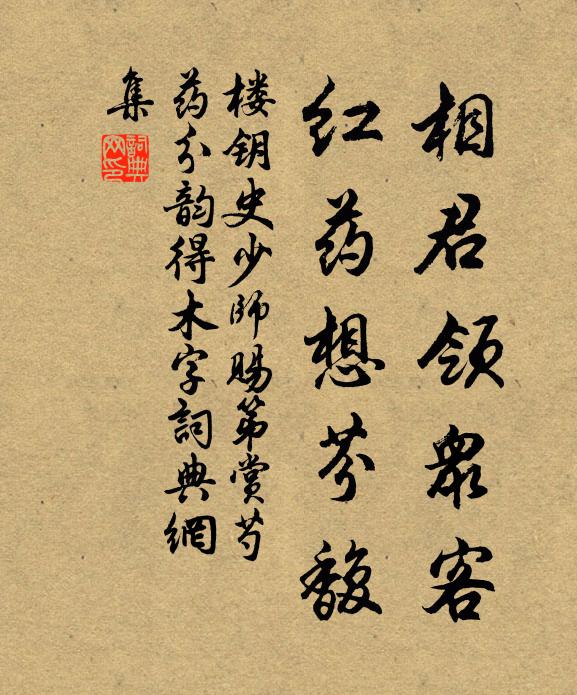 相君领眾客
红药想芬馥
楼钥史少师赐第赏芍
药分韵得木字詞典網
集
詞典
网印